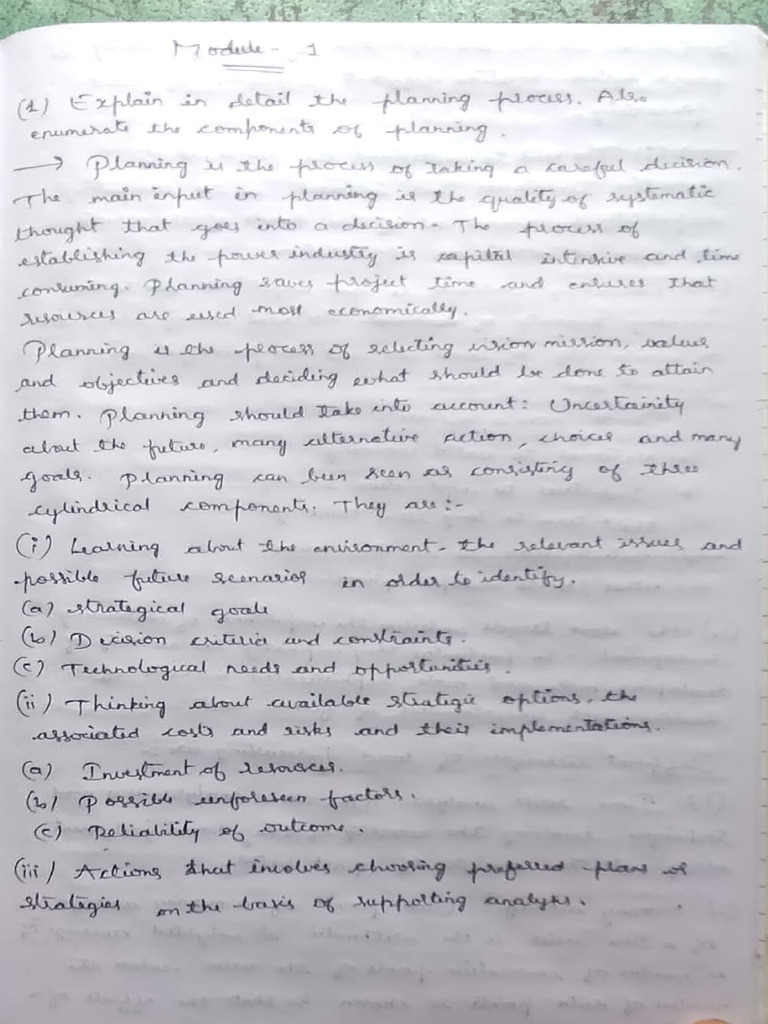 Module - 1
(1) Explain in detail the planning process. Also
enumerate the components of planning.
→ Planning is the process of taking a careful decision.
The main input in planning is the quality of systematic
thought that goes into a decision. The process of
establishing the power industry is capital intensive and time
consuming. Planning saves project time and ensures that
resources are used most economically.
Planning is the process of selecting vision mission, values
and objectives and deciding what should be done to attain
them. Planning should take into account: Uncertainity
about the future, many alternative action, choices and many
goals. Planning can been seen as consisting of three
cylindrical components. They are :-
(i) Learning about the environment - the relevant issues and
possible future scenarios in order to identify.
(a) strategical goals
(b) Decision criteria and constraints.
(c) Technological needs and opportunities.
(ii) Thinking about available strategic options, the
associated costs and risks and their implementations.
(a) Investment of resources.
(b) Possible unforeseen factors.
(c) Reliability of outcome.
(iii) Actions that involves choosing preferred plans or
strategies on the basis of supporting analysis.